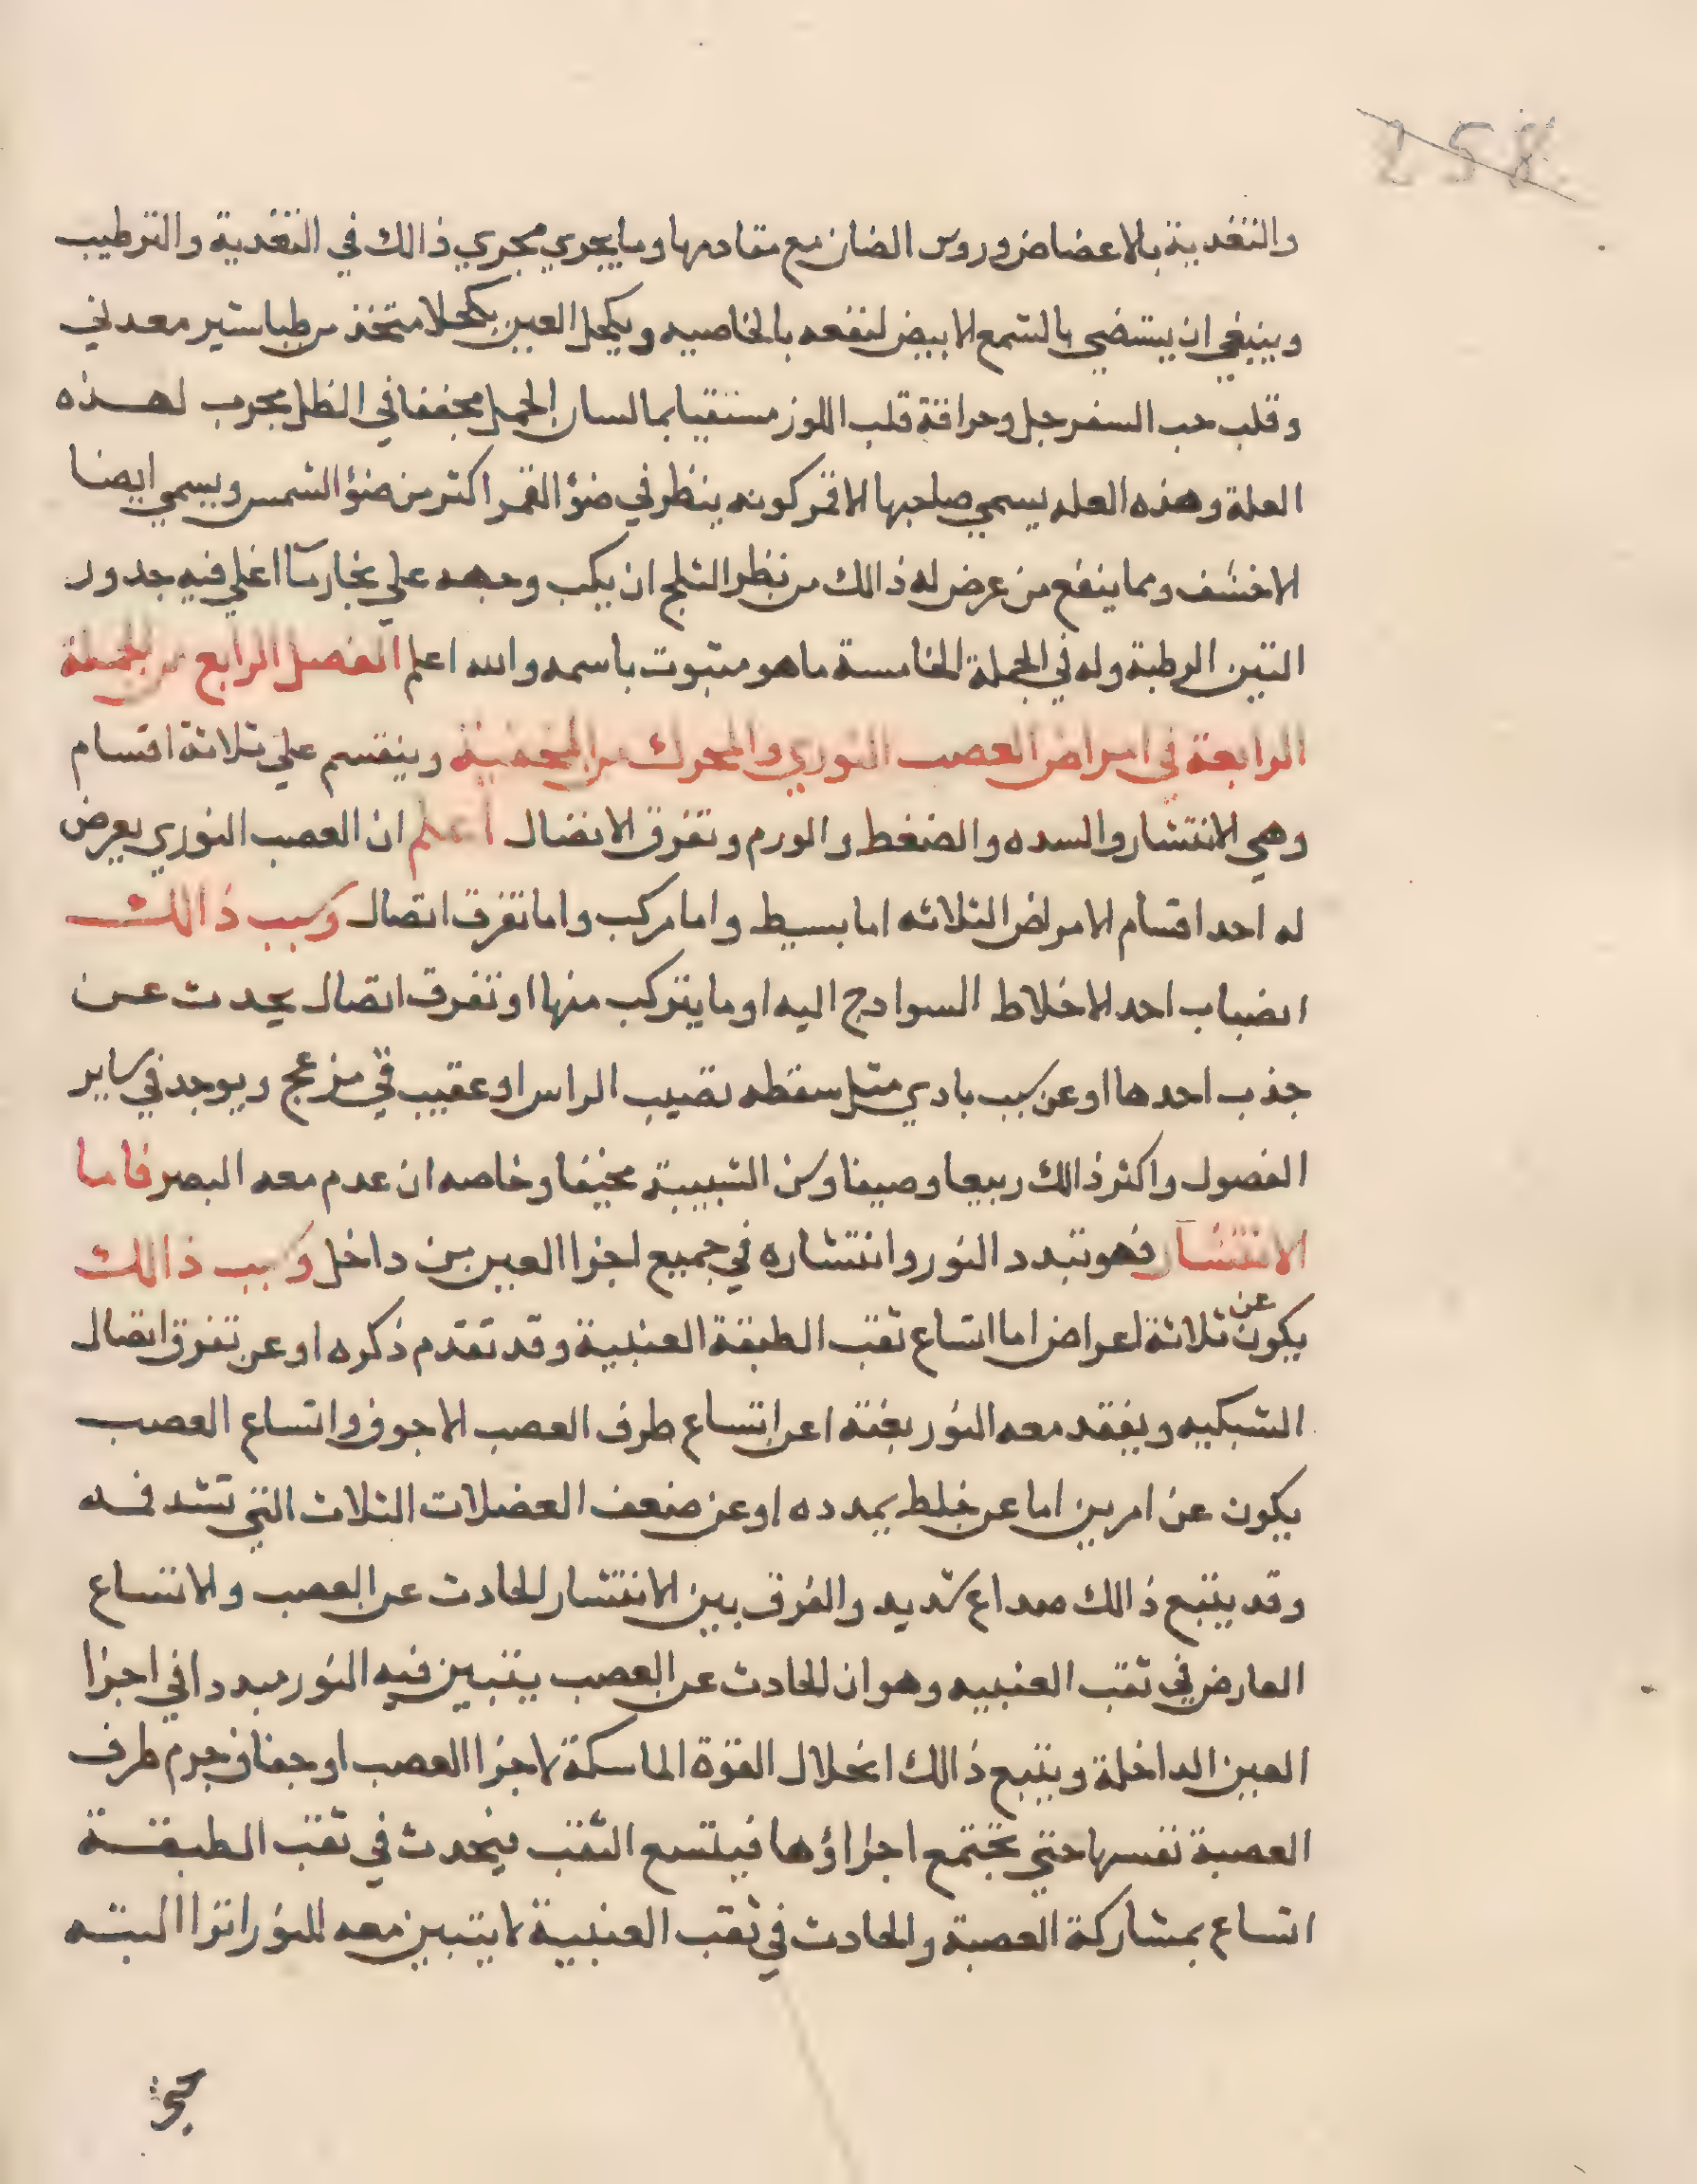 258
والتغدية بالاعضاض وروس الضان مع مقادمها وما يجري مجري ذالك في التغدية والترطيب
وينبغي ان يستضي بالشمع الابيض لنفعه بالخاصيه ويكحل العين بكحلا متخذ من طباشير معدني
وقلب حب السفرجل وحراقة قلب اللوز مستقيا بما لسان الحمل مجففا في الظل مجرب لهذه
العلة وهذه العله يسمي صاحبها الاقمر كونه ينظر في ضؤ القمر اكثر من ضؤ الشمس ويسمي ايضا
الاخشف ومما ينفع من عرض له ذالك من نظر الثلج ان يكب وجهه علي بخار مآ اغلي فيه جدور
التين الرطبة وله في الجملة الخامسة ما هو مثبوت باسمه والله اعلم الفصل الرابع من الجملة
الرابعة في امراض العصب النوري والمحرك من المخفية وينقسم علي ثلاثة اقسام
وهي الانتشار والسده والضغط والورم وتفرق الاتصال اعلم ان العصب النوري يعرض
له احد اقسام الامراض الثلاثه اما بسيط واما مركب واما تفرق اتصال وسبب ذالك
انصباب احد الاخلاط السوادج اليه او ما يتركب منها او تفرق اتصال يحدث عن
جذب احدها او عن سبب بادي مثل سقطه تصيب الراس او عقيب قي مزعج ويوجد في ساير
الفصول واكثر ذالك ربيعا وصيفا وسن الشبيبة مخيفا وخاصه ان عدم معه البصر فاما
الانتشار فهو تبدد النور وانتشاره في جميع اجزا العين من داخل وسبب ذالك
يكون عن ثلاثة اعراض اما اتساع ثقب الطبقة العنبية وقد تقدم ذكره او عن تفرق اتصال
الشبكيه ويفقد معه النور بغتة اعن اتساع طرف العصب الاجوف واتساع العصب
يكون عن امرين اما عن خلط يمدده او عن ضعف العضلات الثلاث التي تشد فمه
وقد يتبع ذالك صداع شديد والفرق بين الانتشار الحادث عن العصب والاتساع
العارض في ثقب العنبيه وهو ان الحادث عن العصب يتبين فيه النور مبددا في اجزا
العين الداخلة ويتبع ذالك انحلال القوة الماسكة لاجزا العصب او جفاف جرم طرف
العصبة نفسها حتي تجتمع اجزاؤها فيتسع الثقب فيحدث في ثقب الطبقة
اتساع بمشاركة العصبة والحادث في ثقب العنبية لا يتبين معه للنور اثرا البته